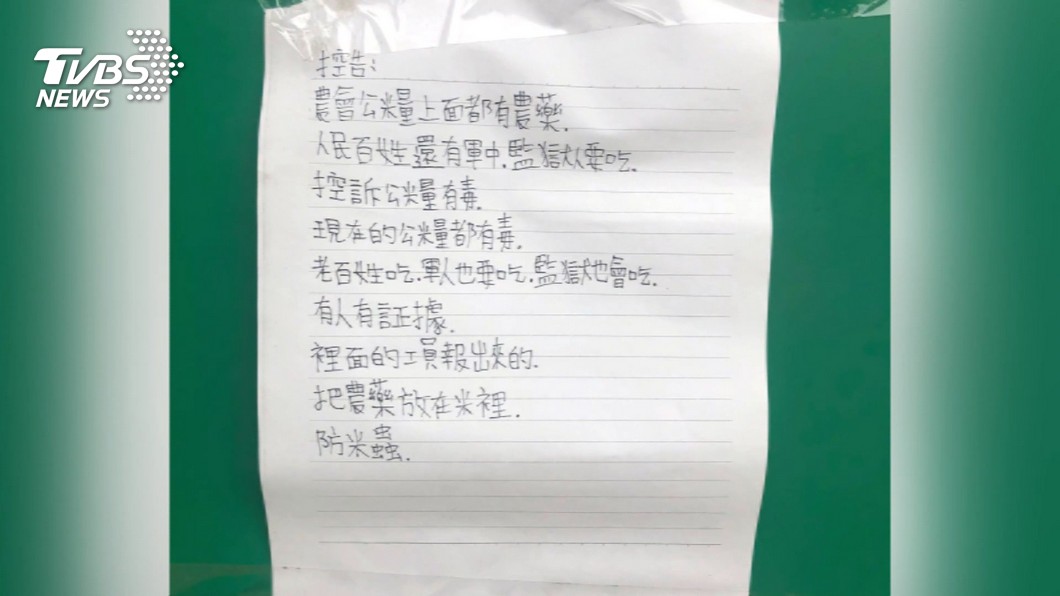 TVBS
NEWS
控告:
農會公糧上面都有農藥.
人民百姓還有軍中.監獄人要吃.
控訴公糧有毒.
現在的公糧都有毒.
老百姓吃.軍人也要吃.監獄也會吃.
有人有証據.
裡面的工員報出來的.
把農藥放在米裡.
防米蟲.